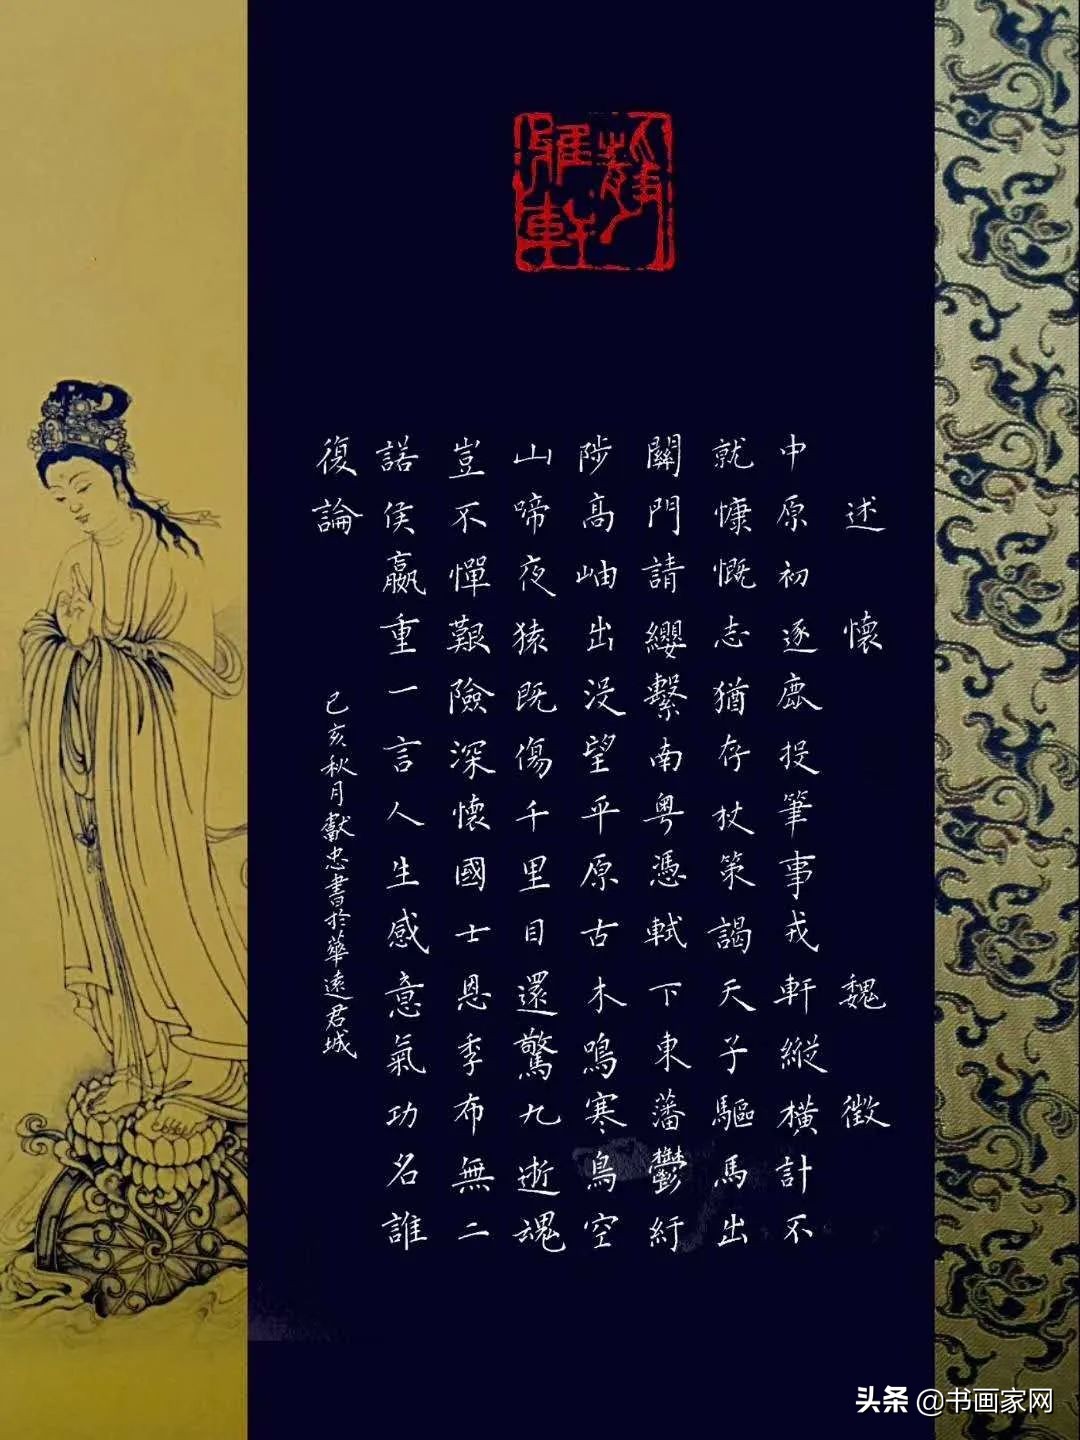 述懷 魏徵
中原初逐鹿投筆事戎軒縱橫計不
就慷慨志猶存杖策謁天子驅馬出
關門請纓繫南粵憑軾下東藩鬱紆
陟高岫出没望平原古木鳴寒鳥空
山啼夜猿既傷千里目還驚九逝魂
豈不憚艱險深懷國士恩季布無二
諾侯嬴重一言人生感意氣功名誰
復論
己亥秋月獻忠書於華遠君城
雅軒
头条 @书画家网